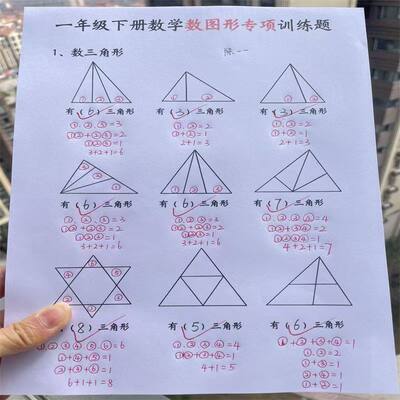 一年级下册数学数图形专项训练题
1、数三角形
陈一一
① ② ③
① ②
① ②
有(6)三角形 有(3)三角形 有(3)三角形
①.②.③=3 ①.②=2 ①.②=2
①②+②③=2 ①+②=1 ①+②=1
①②③=1 2+1=3 2+1=3
3+2+1=6
③ ② ①
① ② ③
有(6)三角形 有(6)三角形 有(7)三角形
①.②.③=3 ①.②.③=3
①②+②③=2 ①②+②③=2
①②③=1 ①②③=1 ①②③④=1
3+2+1=6 3+2+1=6 4+2+1=7
有(8)三角形 有(5)三角形 有(6)三角形
①②③④⑤⑥=6 ①.②.③.④=4
①+②+③+④=1
①+④+⑤=1 ①②+③+④=1 ①.②=2
②+③+⑥=1 4+1=5 ①+④=1
6+1+1=8 ②+③=1
①+②=1